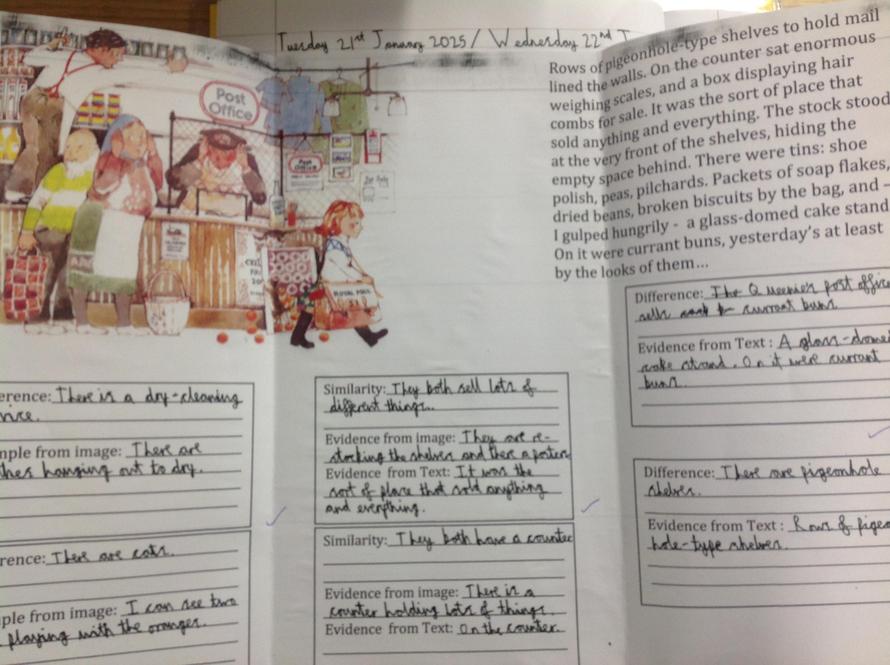 Tuesday 21st January 2025 / Wednesday 22nd
Rows of pigeonhole-type shelves to hold mail
lined the walls. On the counter sat enormous
weighing scales, and a box displaying hair
combs for sale. It was the sort of place that
sold anything and everything. The stock stood
at the very front of the shelves, hiding the
empty space behind. There were tins: shoe
polish, peas, pilchards. Packets of soap flakes,
dried beans, broken biscuits by the bag, and -
I gulped hungrily - a glass-domed cake stand
On it were currant buns, yesterday's at least
by the looks of them...
Post
Office
Post
Office
ROYAL MAIL
erence: There is a dry-cleaning
mple from image: There are
hes hanging out to dry.
rence: There are cats.
ple from image: I can see two
playing with the oranges.
Similarity: They both sell lots of
different things.
Evidence from image: They are re-
stocking the shelves and there a poster
Evidence from Text: It was the
sort of place that sold anything
and everything.
Similarity: They both have a counter
Evidence from image: There is a
counter holding lots of things.
Evidence from Text: On the counter
Difference: The Queenies post office
sells currant buns.
Evidence from Text : A glass-domed
cake stand. On it were currant
buns.
Difference: There are pigeonhole
shelves.
Evidence from Text : Rows of pigeo
hole-type shelves.